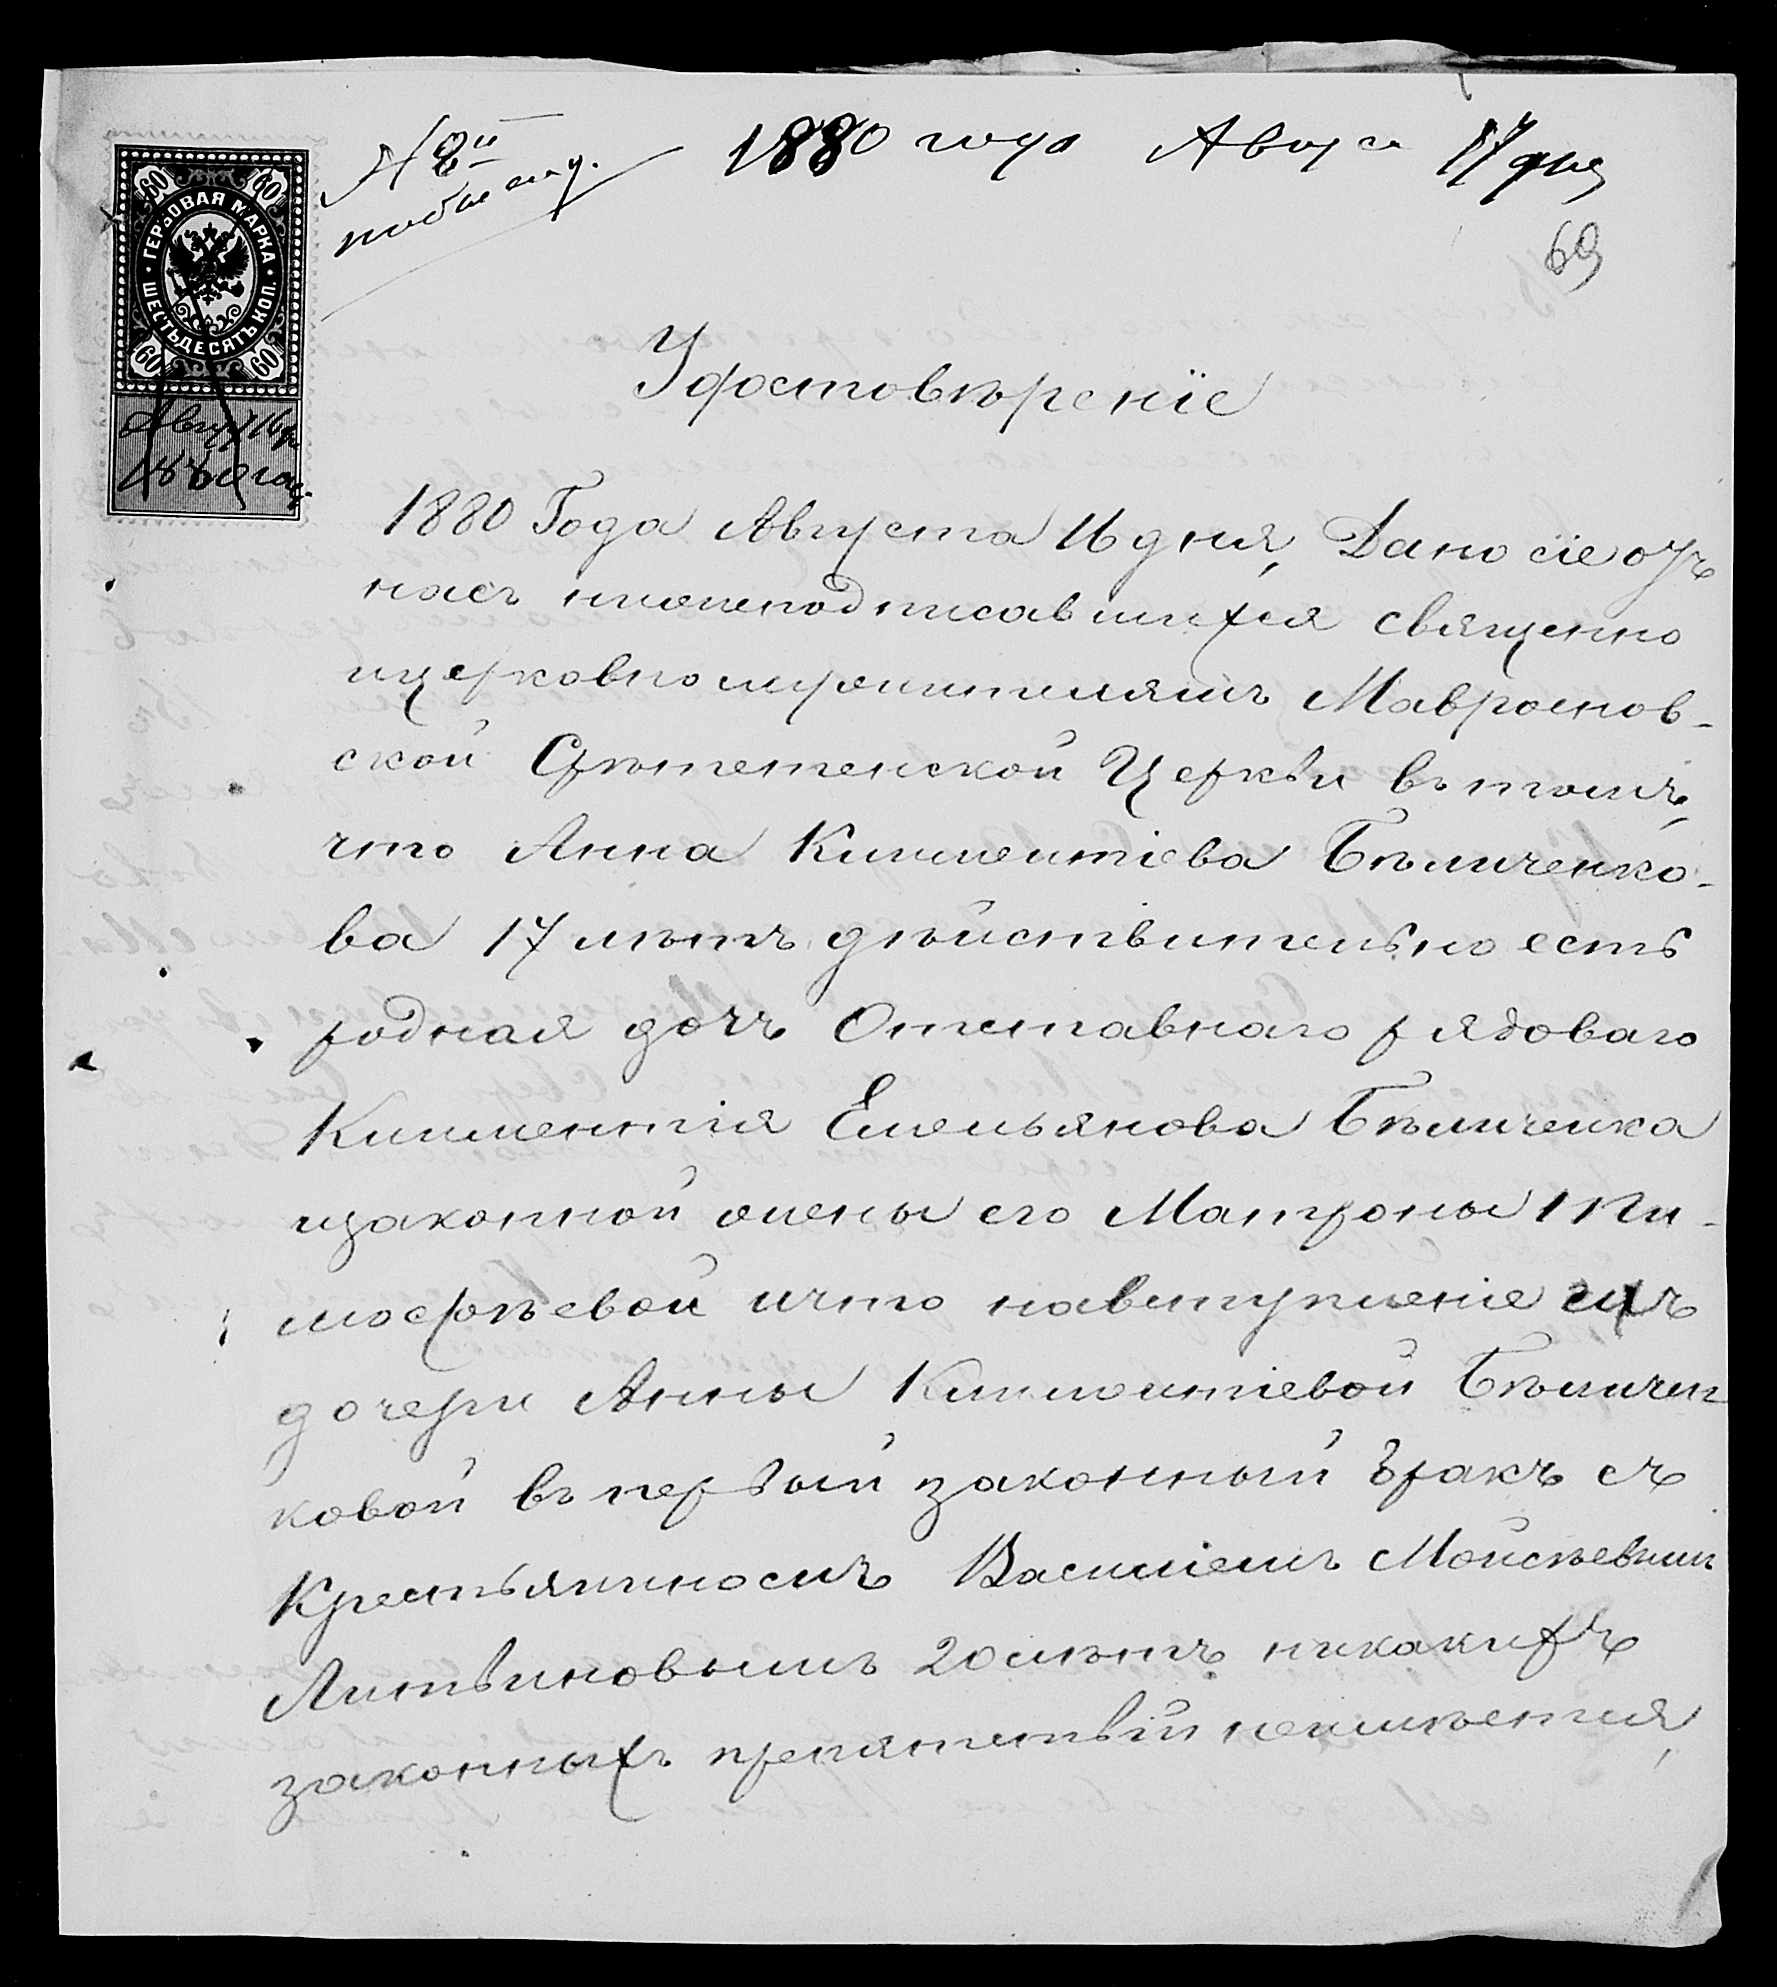 60 60
ГЕРБОВАЯ МАРКА
ШЕСТЬДЕСЯТЪ КОП.
60 60
Авгус 16 дн
1880 год.
№ 8й
1880 года Авгус 17 дня
69
Удостовѣреніе
1880 Года Августа 16 дня, Дано сіе отъ
насъ нижеподписавшихся священно
ицерковнослужителямъ Мавроянов-
ской Срѣтетенской Церкви въ томъ,
что Анна Климентіева Бѣличенко-
ва 17 лѣтъ дѣйствительно есть
родная дочъ Отставнаго рядоваго
Климентія Емельянова Бѣличенка
изаконной жены его Матроны Ти-
мофѣевой ичто навступленіе ихъ
дочери Анны Климентіевой Бѣличен
ковой въ первый законный бракъ съ
Крестьяниномъ Василіемъ Мойсѣевым
Литвиновымъ 20 лѣтъ никакихъ
законныхъ препятствій неимѣется,